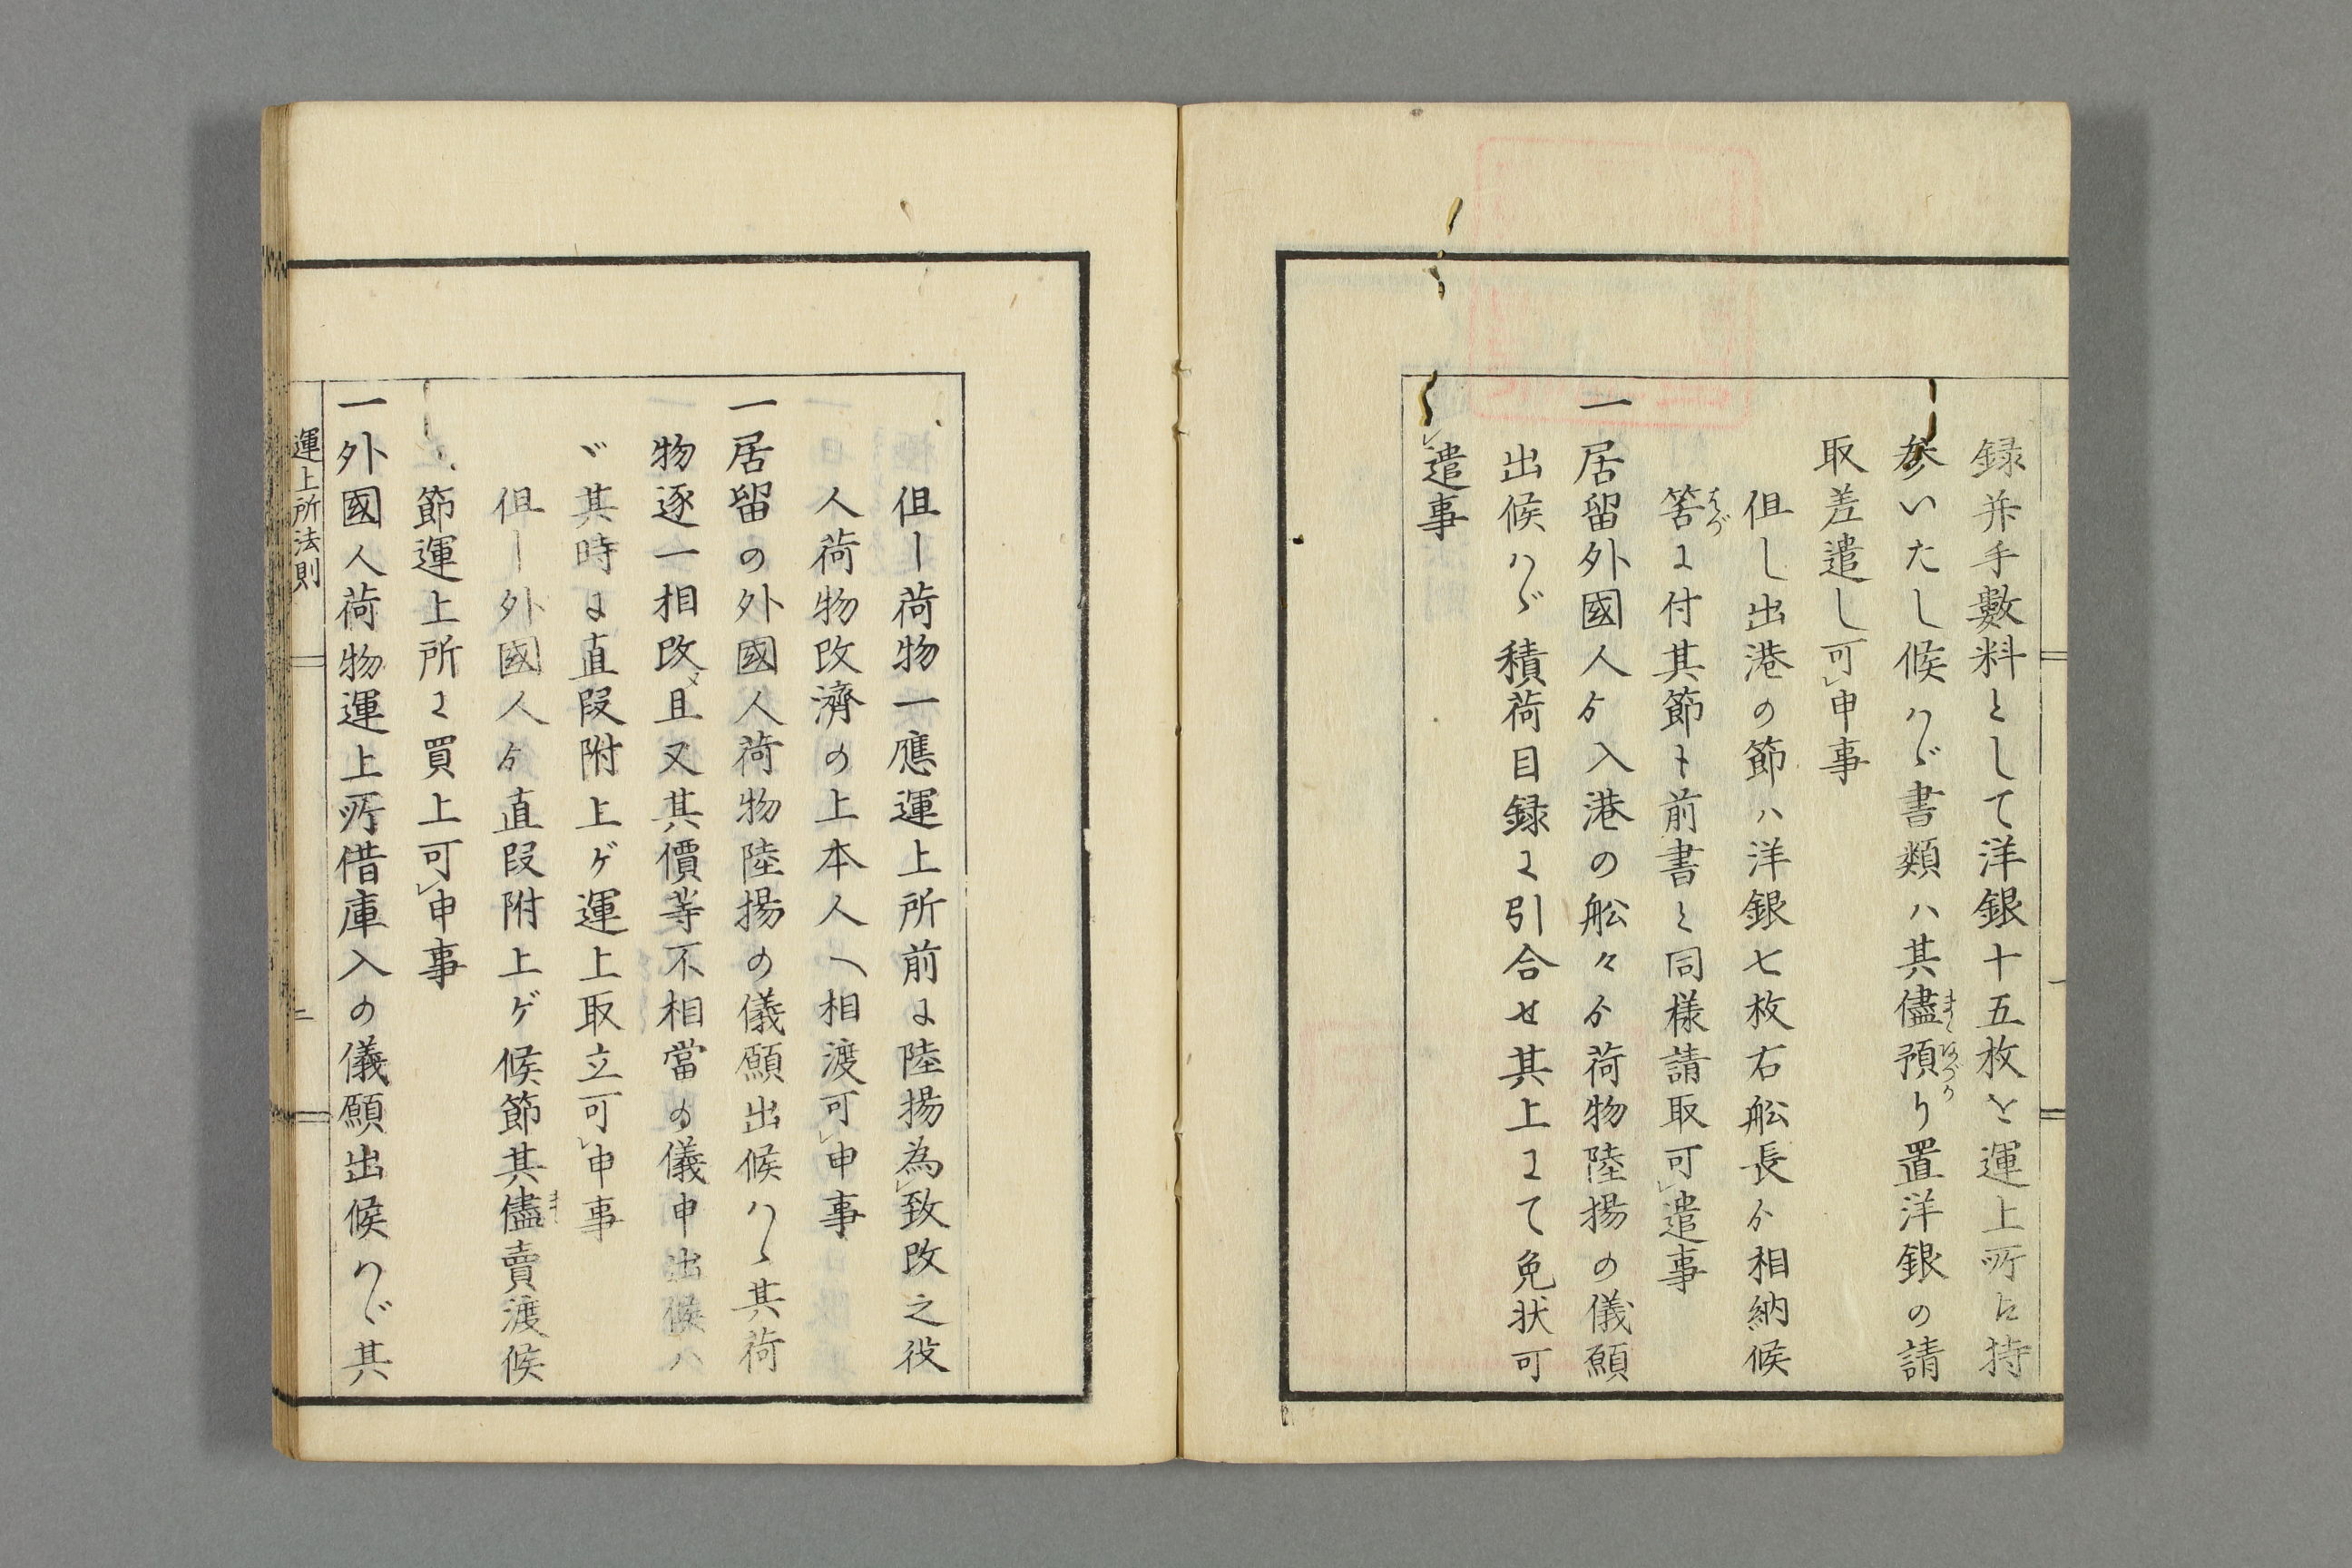 録并手數料として洋銀十五枚を運上所に持
参いたし候ハヾ書類ハ其儘預り置洋銀の請
取差遣し可申事
但し出港の節ハ洋銀七枚右舩長ゟ相納候
筈に付其節も前書と同様請取可遣事
一居留外國人ゟ入港の舩々ゟ荷物陸揚の儀願
出候ハヾ積荷目録に引合せ其上にて免状可
遣事
但し荷物一應運上所前に陸揚為致改之役
人荷物改濟の上本人へ相渡可申事
一居留の外國人荷物陸揚の儀願出候ハヽ其荷
物逐一相改メ且又其價等不相當の儀申出候ハ
ヾ其時に直段附上ゲ運上取立可申事
但し外國人ゟ直段附上ゲ候節其儘賣渡候
節運上所に買上可申事
一外國人荷物運上所借庫入の儀願出候ハヾ其
運上所法則